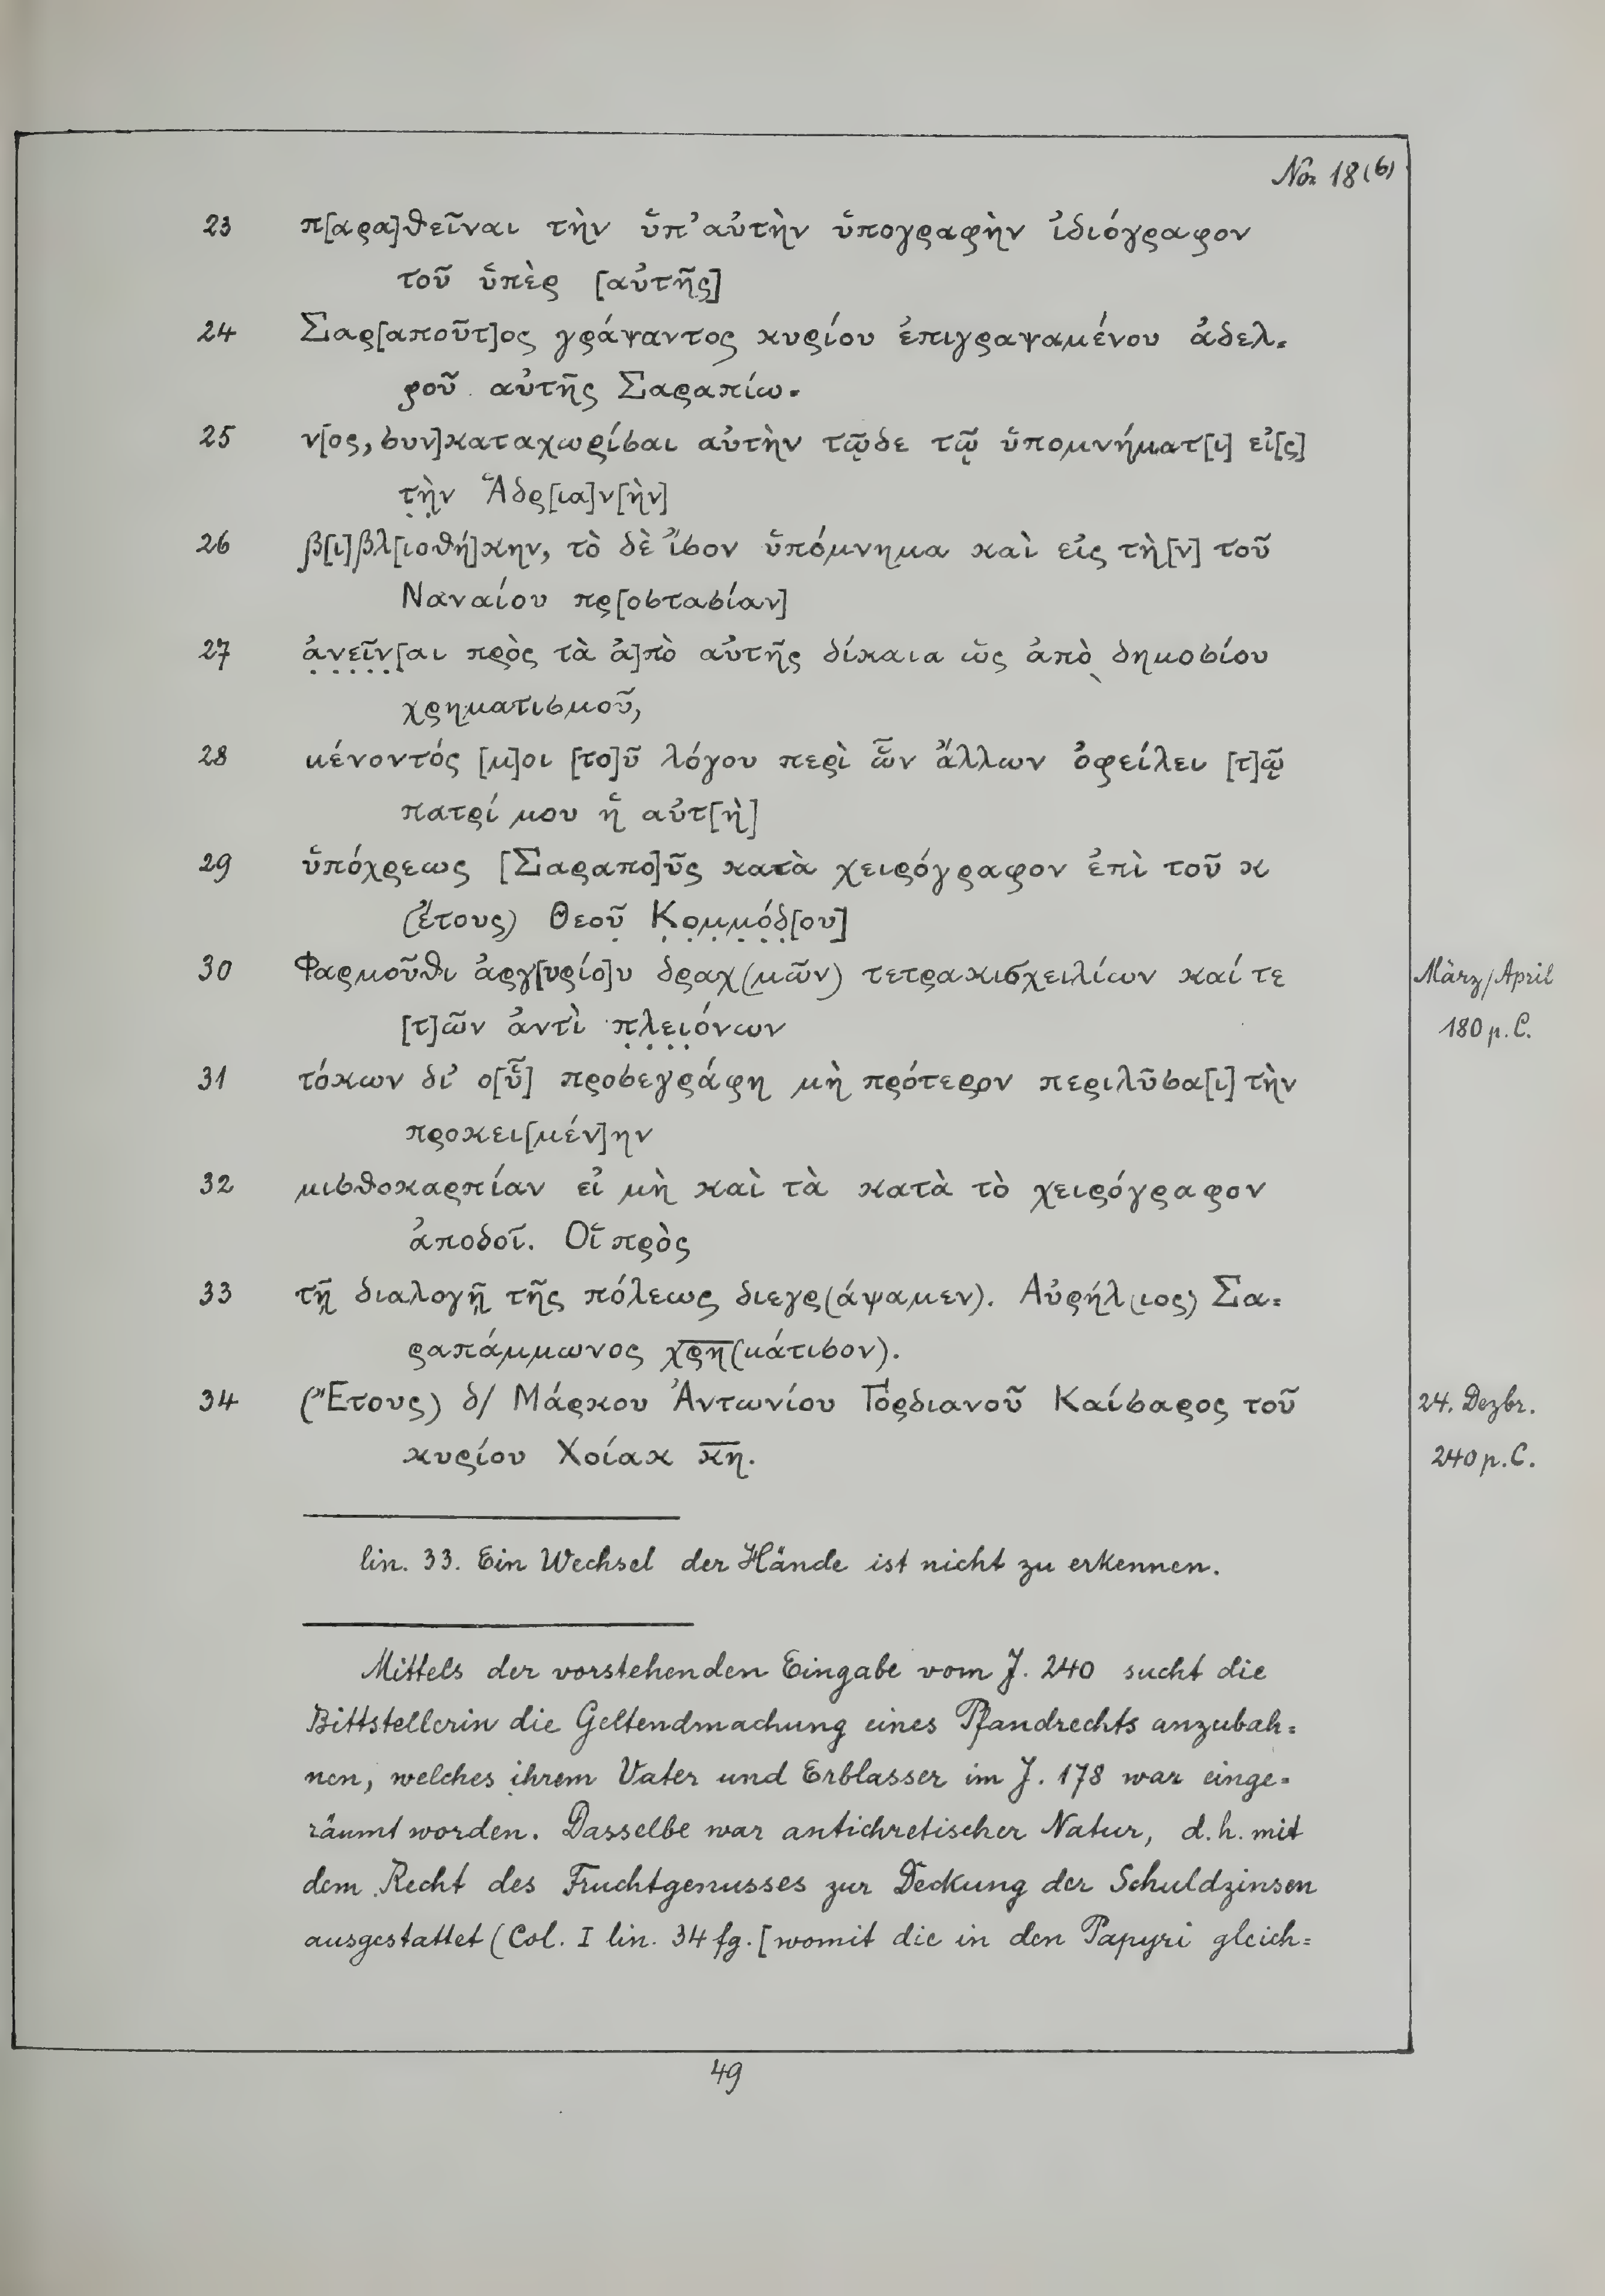 No 18 (b)
23 π[αρα]θεῖναι τὴν ὑπ’ αὐτὴν ὑπογραφὴν ἰδιόγραφον
τοῦ ὑπὲρ [αὐτῆς]
24 Σαρ[αποῦτ]ος γράψαντος κυρίου ἐπιγραψαμένου ἀδελ=
φοῦ αὐτῆς Σαραπίω=
25 ν[ος, συν]καταχωρίσαι αὐτὴν τῷδε τῷ ὑπομνήματ[ι] εἰ[ς]
τ̣ὴ̣ν Ἁδρ[ια]ν[ὴν]
26 β[ι]βλ[ιοθή]κην, τὸ δὲ ἴσον ὑπόμνημα καὶ εἰς τὴ[ν] τοῦ
Ναναίου πρ[οστασίαν]
27 ἀ̣ν̣ε̣ῖ̣ν̣[αι πρὸς τὰ ἀ]πὸ αὐτῆς δίκαια ὡς ἀπὸ δημοσίου
χρηματισμοῦ,
28 μένοντός [μ]οι [το]ῦ λόγου περὶ ὧν ἄλλων ὀφείλει [τ]ῷ
πατρί μου ἡ αὐτ[ὴ]
29 ὑπόχρεως [Σαραπο]ῦς κατὰ χειρόγραφον ἐπὶ τοῦ κ
(ἔτους) Θεοῦ̣ Κ̣ο̣μ̣μ̣ό̣δ̣[ου]
30 Φαρμοῦθι ἀργ[υρίο]υ δραχ(μῶν) τετρακισχειλίων καί τε
[τ]ῶν ἀντὶ π̣λ̣ε̣ι̣όνων
31 τόκων δι’ ο[ὗ] προσεγράφη μὴ πρότερον περιλῦσα[ι] τὴν
προκει[μέν]ην
32 μισθοκαρπίαν εἰ μὴ καὶ τὰ κατὰ τὸ χειρόγραφον
ἀποδοῖ. Οἱ πρὸς
33 τῇ διαλογῇ τῆς πόλεως διεγρ(άψαμεν). Αὐρήλ(ιος) Σα=
ραπάμμωνος χρη(μάτισον).
34 (Ἔτους) δ/ Μάρκου Ἀντωνίου Γορδιανοῦ Καίσαρος τοῦ
κυρίου Χοίακ κη.
März/April
180 p. C.
24. Dezbr.
240 p. C.
lin. 33. Ein Wechsel der Hände ist nicht zu erkennen.
Mittels der vorstehenden Eingabe vom J. 240 sucht die
Bittstellerin die Geltendmachung eines Pfandrechts anzubah=
nen, welches ihrem Vater und Erblasser im J. 178 war einge=
räumt worden. Dasselbe war antichretischer Natur, d. h. mit
dem Recht des Fruchtgenusses zur Deckung der Schuldzinsen
ausgestattet (Col. I lin. 34 fg. [womit die in den Papyri gleich=
49